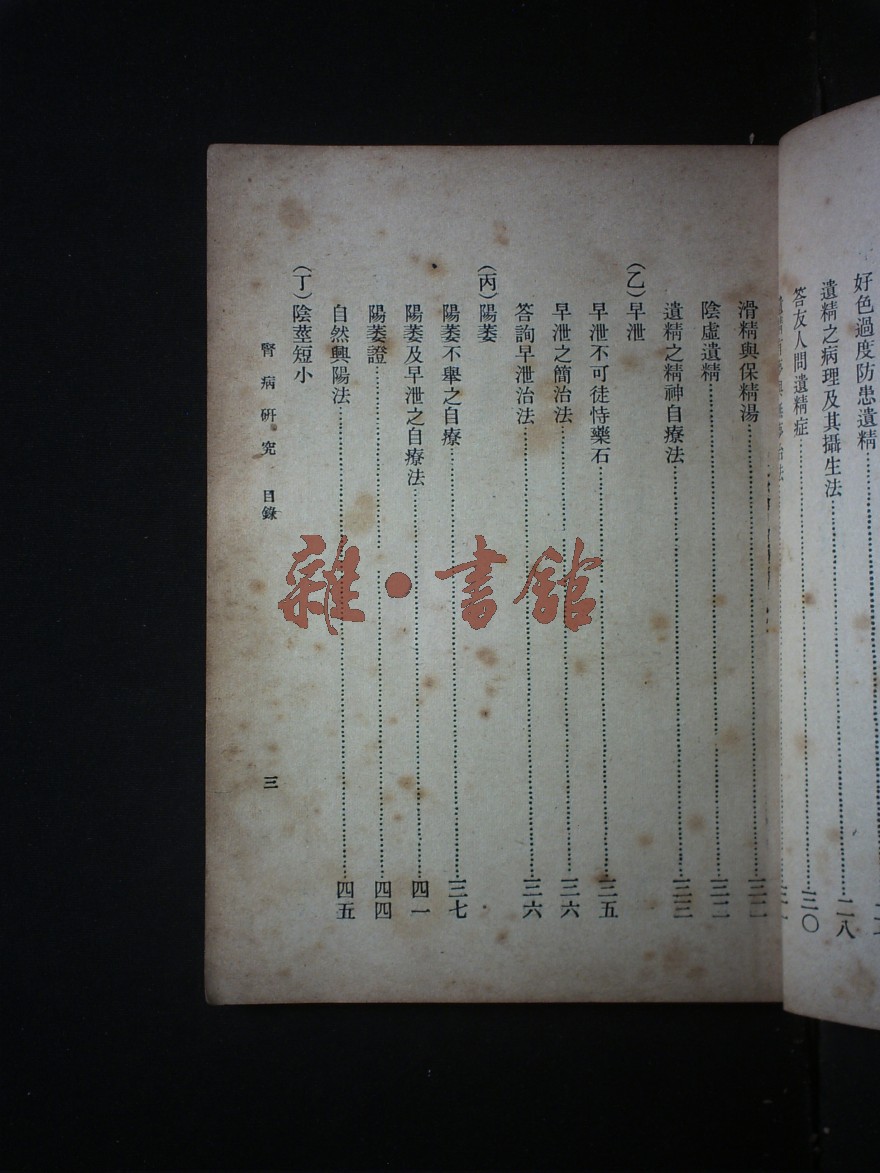 好色過度防患遺精
遺精之病理及其攝生法 二八
答友人問遺精症 三〇
滑精與保精湯 三二
陰虛遺精 三二
遺精之精神自療法 三三
(乙)早泄
早泄不可徒恃藥石 三五
早泄之簡治法 三六
答詢早泄治法 三六
(丙)陽萎
陽萎不舉之自療 三七
陽萎及早泄之自療法 四一
陽萎證 四四
自然興陽法 四五
(丁)陰莖短小
腎病研究 目錄 三
雜·書館